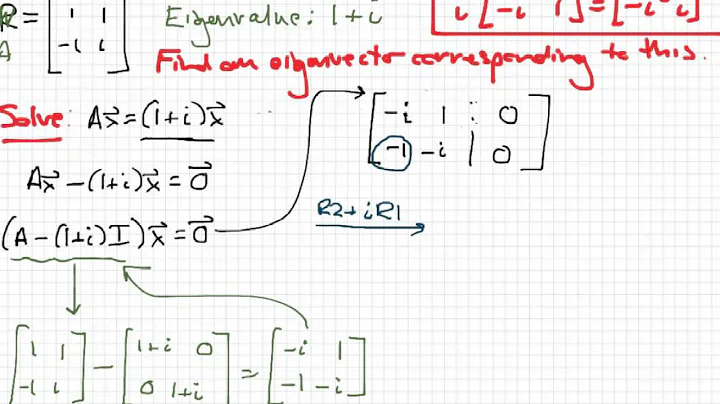 R = [1 1
-i i]
A
Eigenvalue: 1+i
i[-i 1] = [-i² i]
Find an eigenvector corresponding to this.
Solve: Ax⃗ = (1+i)x⃗
Ax⃗ − (1+i)x⃗ = 0⃗
(A − (1+i)I)x⃗ = 0⃗
[-i 1 ⋮ 0
-1 -i | 0]
R2+iR1
[1 1
-1 i] − [1+i 0
0 1+i] = [-i 1
-1 -i]